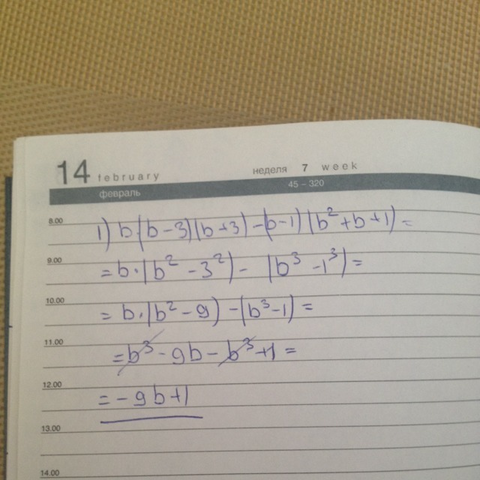 14 february неделя 7 week
февраль 45 – 320
8.00 1) b·(b-3)(b+3)-(b-1)(b²+b+1)=
9.00 =b·(b²-3²)-(b³-1³)=
10.00 =b·(b²-9)-(b³-1)=
11.00 =b³-9b-b³+1=
12.00 =-9b+1
13.00
14.00